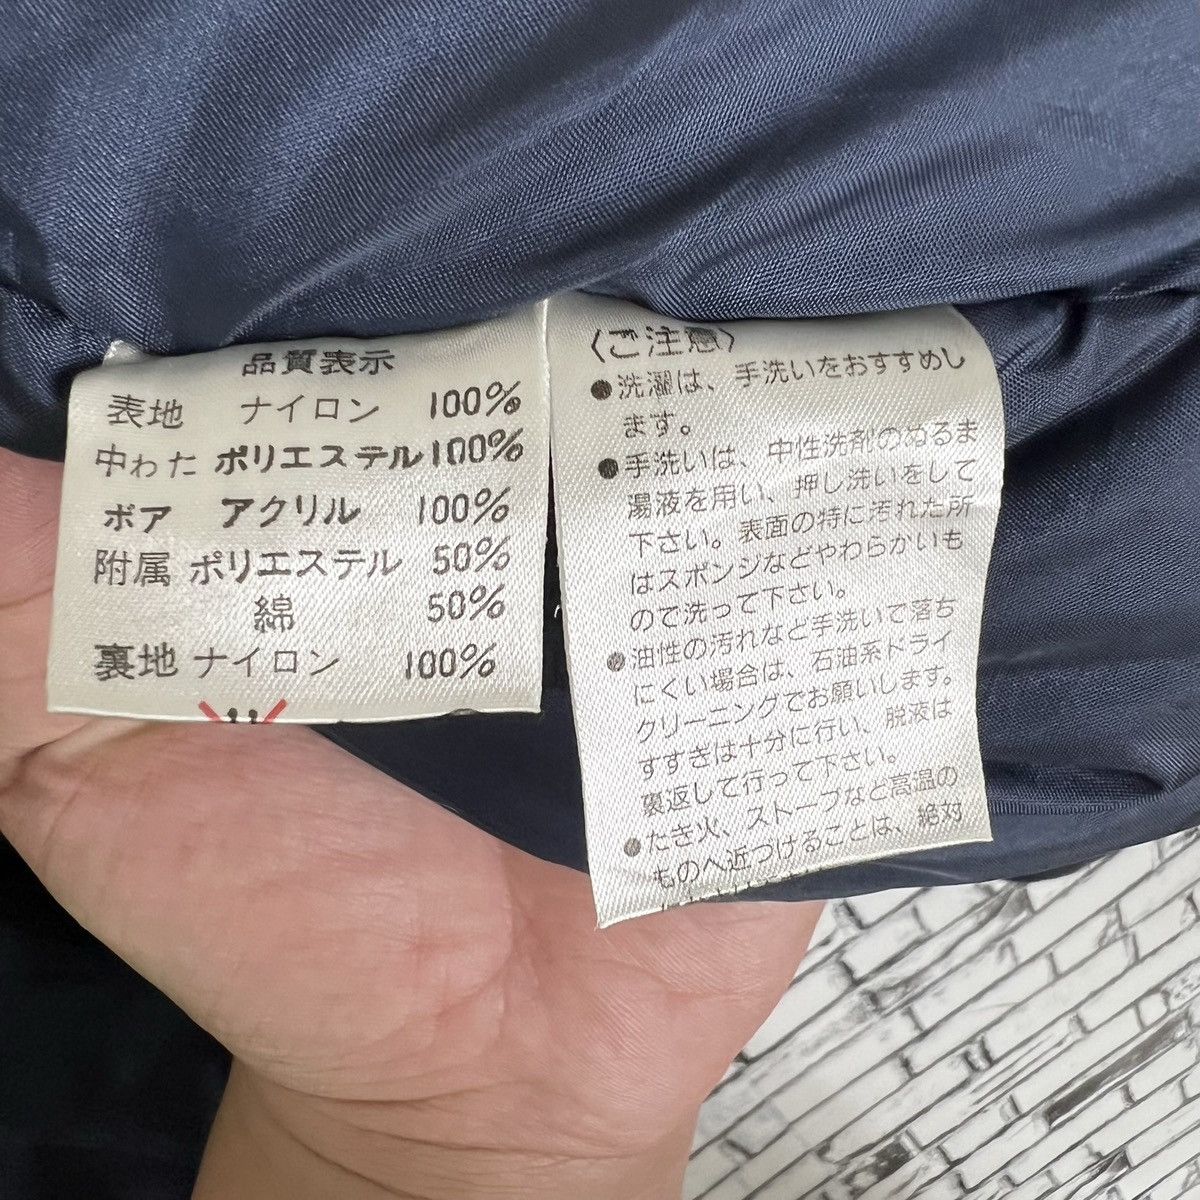 品質表示
表地 ナイロン 100%
中わた ポリエステル 100%
ボア アクリル 100%
附属 ポリエステル 50%
綿 50%
裏地 ナイロン 100%
〈ご注意〉
●洗濯は、手洗いをおすすめし
ます。
●手洗いは、中性洗剤のゆるま
湯液を用い、押し洗いをして
下さい。表面の特に汚れた所
はスポンジなどやわらかいも
ので洗って下さい。
●油性の汚れなど手洗いで落ち
にくい場合は、石油系ドライ
クリーニングでお願いします。
すすぎは十分に行い、脱液は
裏返して行って下さい。
●たき火、ストーブなど高温の
ものへ近づけることは、絶対